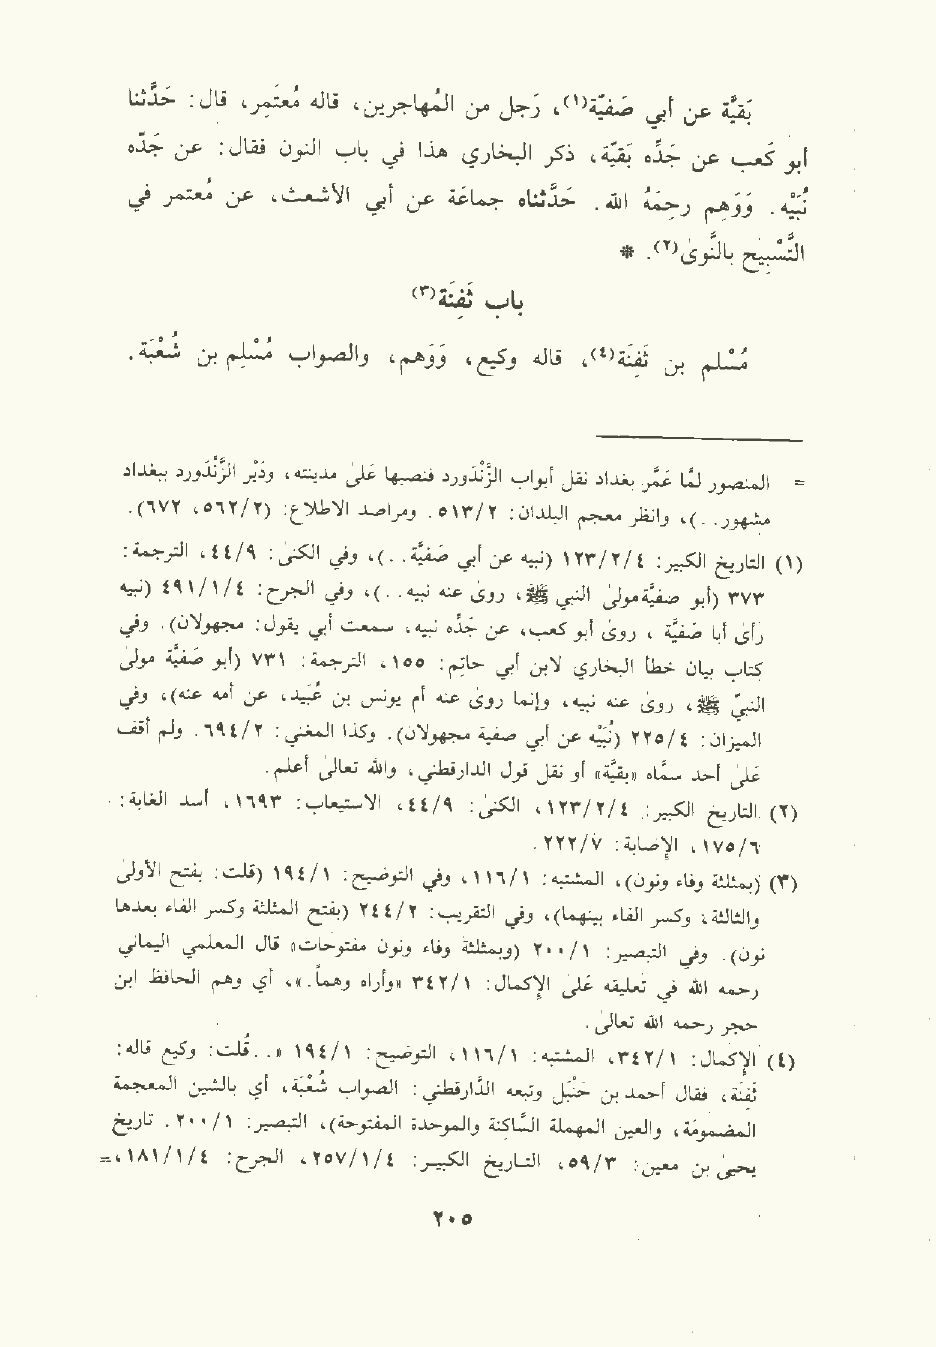 بَقيَّة عن أبي صَفيّة(١)، رَجل من المُهاجرين، قاله مُعتَمِر، قال: حَدَّثنا
أبو كَعب عن جَدِّه بَقيَّة، ذكر البخاري هذا في باب النون فقال: عن جَدّه
نُبَيْه. وَوَهِم رحِمَهُ الله. حَدَّثناه جماعَة عن أبي الأشعث، عن مُعتمر في
التَّسْبِيْح بالنَّوىٰ(٢). *
باب ثَفِنَة(٣)
مُسْلم بن ثَفِنَة(٤)، قاله وكيع، وَوَهم، والصواب مُسْلِم بن شُعْبَة.
= المنصور لمَّا عَمَّر بغداد نقل أبواب الزَّنْدَورد فنصبها علىٰ مدينته، ودَيْر الزَّنْدَورد ببغداد
مشهور..)، وانظر معجم البلدان: ٥١٣/٢. ومراصد الاطلاع: (٥٦٢/٢، ٦٧٢).
(١) التاريخ الكبير: ١٢٣/٢/٤ (نبيه عن أبي صَفيَّة..)، وفي الكنىٰ: ٤٤/٩، الترجمة:
٣٧٣ (أبو صفيَّة مولىٰ النبي ﷺ، روىٰ عنه نبيه..)، وفي الجرح: ٤٩١/١/٤ (نبيه
رأىٰ أبا صفيَّة، روىٰ أبو كعب، عن جَدّه نبيه، سمعت أبي يقول: مجهولان). وفي
كتاب بيان خطأ البخاري لابن أبي حاتِم: ١٥٥، الترجمة: ٧٣١ (أبو صَفيَّة مولىٰ
النبيّ ﷺ، روىٰ عنه نبيه، وإنما روىٰ عنه أم يونس بن عُبَيد، عن أمه عنه)، وفي
الميزان: ٢٢٥/٤ (نُبَيْه عن أبي صفية مجهولان). وكذا المغني: ٦٩٤/٢. ولم أقف
علىٰ أحد سمَّاه «بقيَّة» أو نقل قول الدارقطني، والله تعالىٰ أعلم.
(٢) التاريخ الكبير: ١٢٣/٢/٤، الكنىٰ: ٤٤/٩، الاستيعاب: ١٦٩٣، أسد الغابة:
١٧٥/٦، الإصابة: ٢٢٢/٧.
(٣) (بمثلثة وفاء ونون)، المشتبه: ١١٦/١، وفي التوضيح: ١٩٤/١ (قلت: بفتح الأولىٰ
والثالثة، وكسر الفاء بينهما)، وفي التقريب: ٢٤٤/٢ (بفتح المثلثة وكسر الفاء بعدها
نون). وفي التبصير: ٢٠٠/١ (وبمثلثة وفاء ونون مفتوحات» قال المعلمي اليماني
رحمه الله في تعليقه علىٰ الإكمال: ٣٤٢/١ «وأراه وهماً.»، أي وهم الحافظ ابن
حجر رحمه الله تعالىٰ.
(٤) الإكمال: ٣٤٢/١، المشتبه: ١١٦/١، التوضيح: ١٩٤/١ «.. قُلت: وكيع قاله:
ثَفِنَة، فقال أحمد بن حَنْبَل وتبعه الدَّارقطني: الصواب شُعْبَة، أي بالشين المعجمة
المضمومة، والعين المهملة السَّاكنة والموحدة المفتوحة)، التبصير: ٢٠٠/١. تاريخ
يحيىٰ بن معين: ٥٩/٣، التاريخ الكبير: ٢٥٧/١/٤، الجرح: ١٨١/١/٤،=
٢٠٥